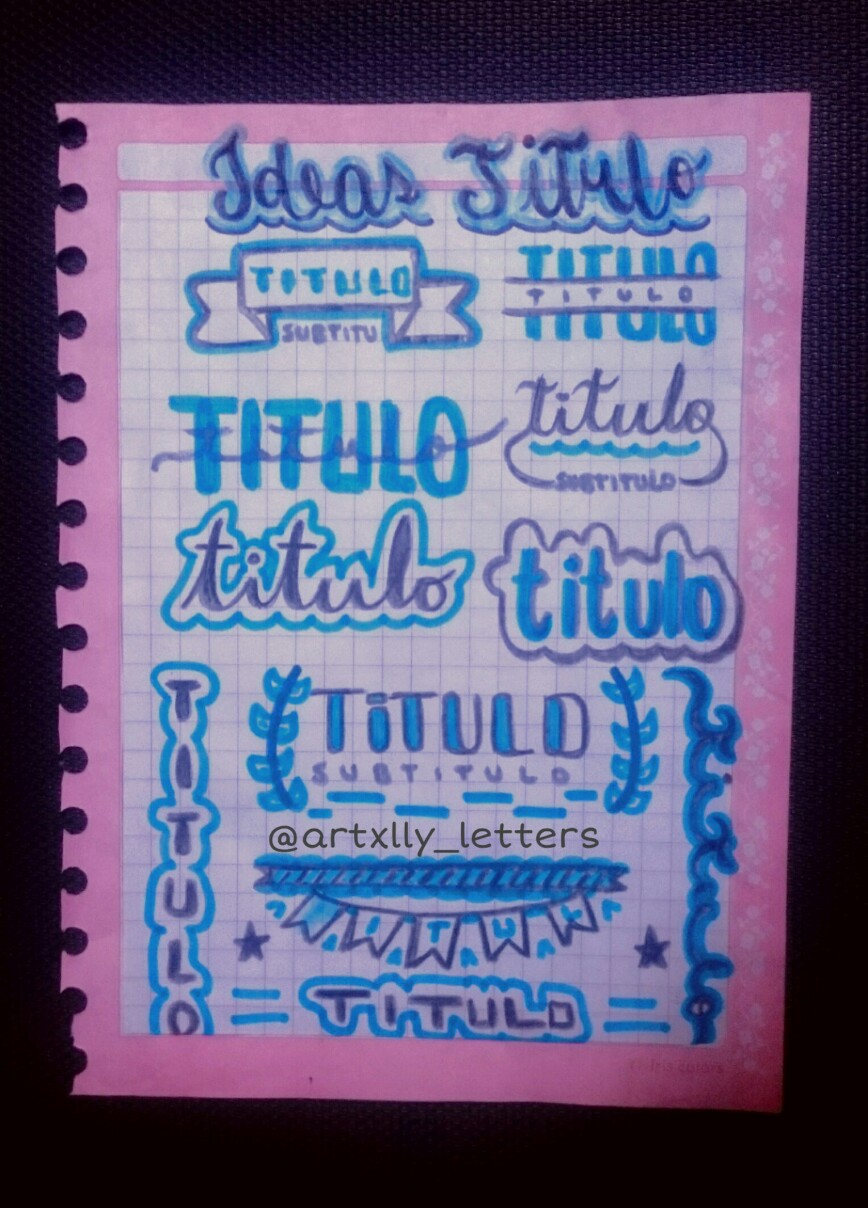 Ideas Título
TITULO
SUBTITU
TITULO
TITULO
TITULO
TITULO
titulo
titulo
SUBTITULO
titulo
titulo
TITULO
TiTULO
SUBTITULO
Titulo
@artxlly_letters
TITULO